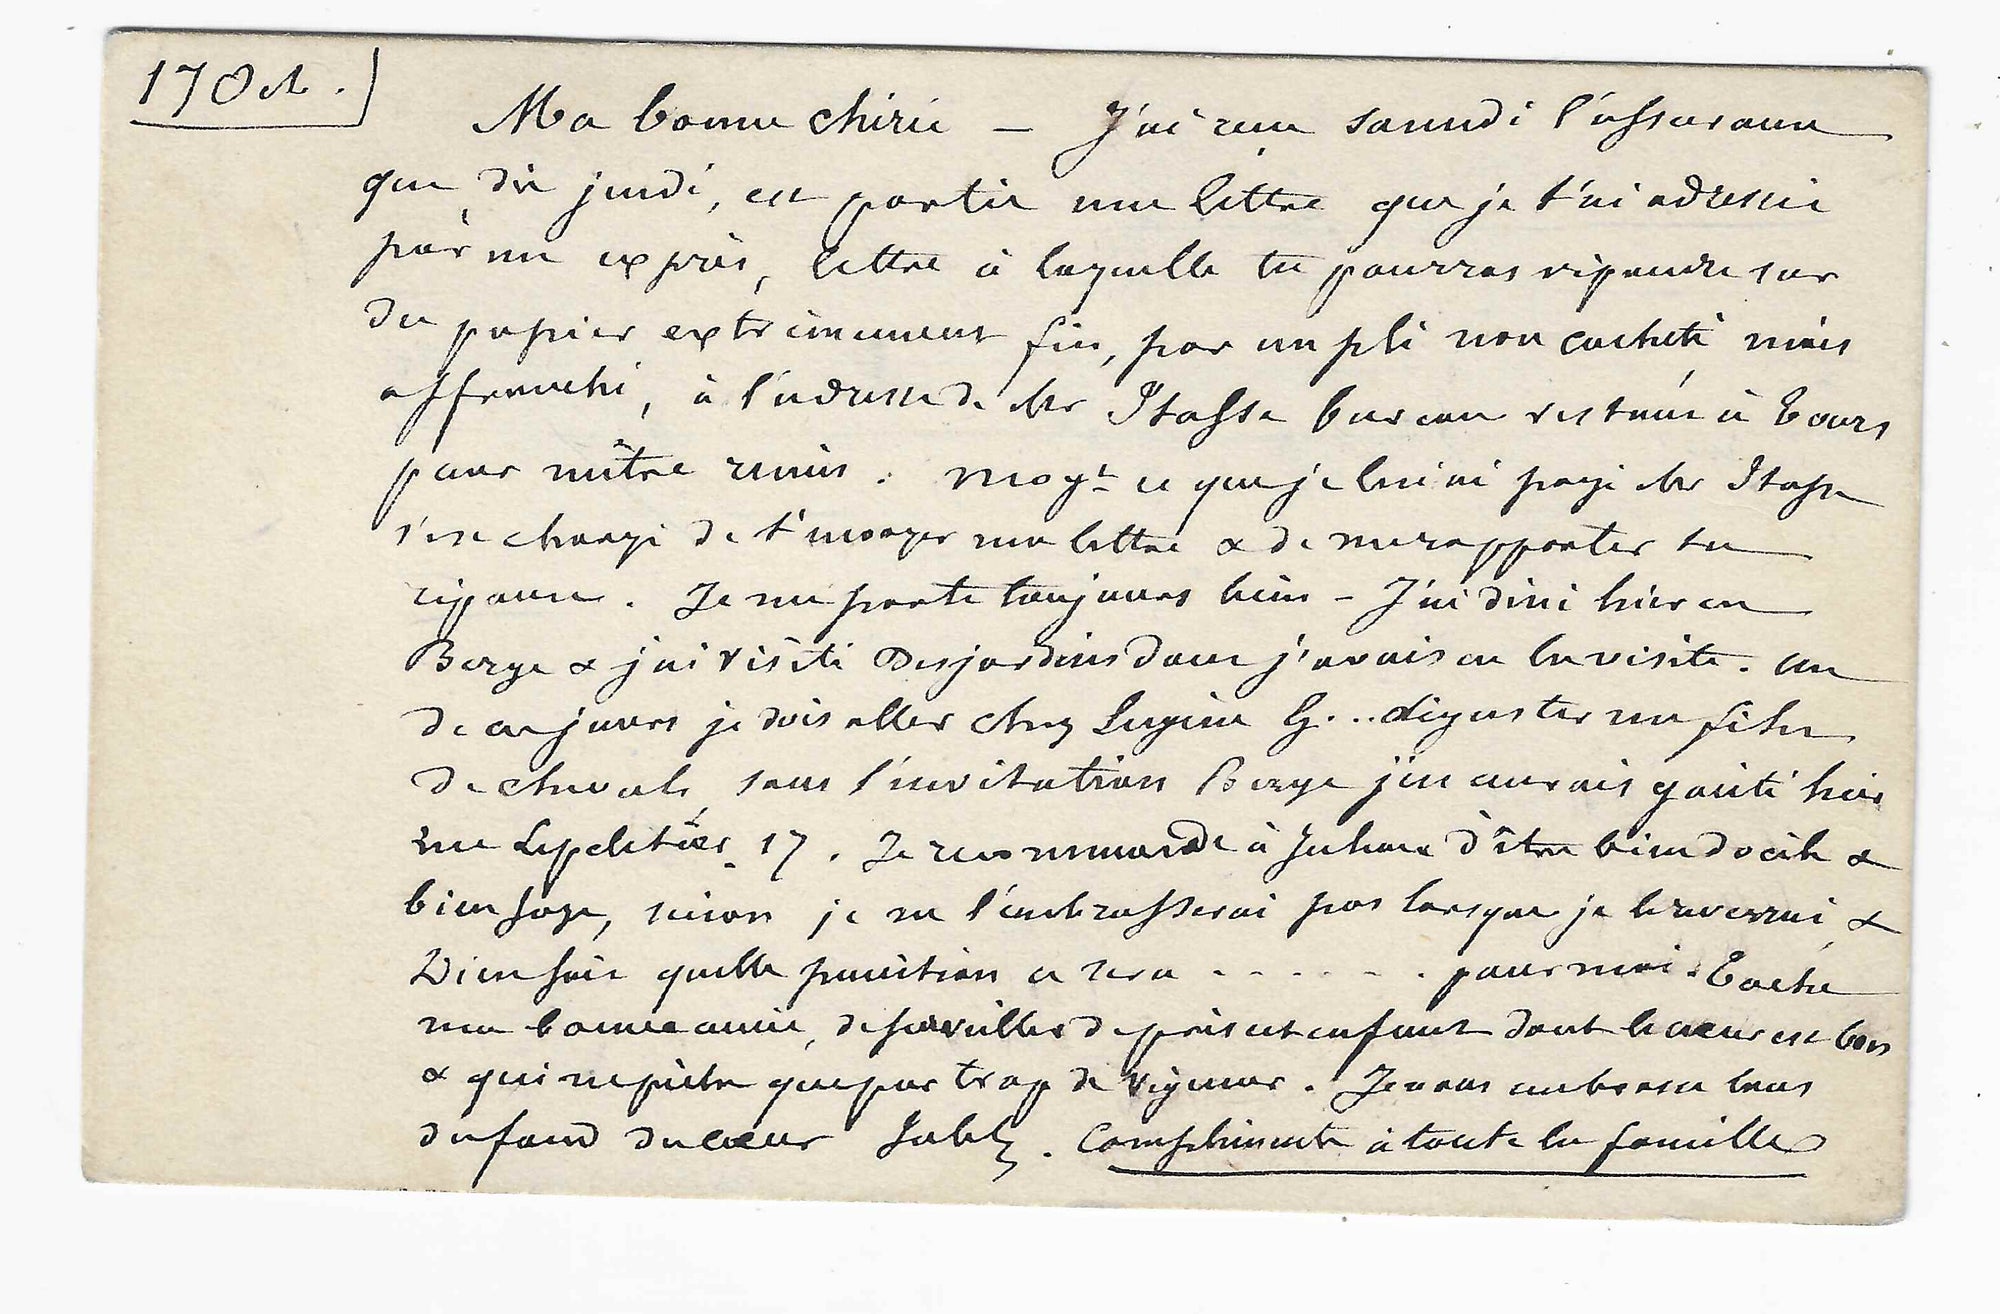 17 Oct.
Ma bonne chérie – J'ai reçu samedi l'assurance
que, dès jeudi, est partie une lettre que je t'ai adressée
par un exprès, lettre à laquelle tu pourras répondre sur
du papier extrêmement fin, par un pli non cacheté mais
affranchi, à l'adresse de Mr Itasse bureau restant à Tours
pour m'être remis. Moyt ce que je lui ai payé Mr Itasse
s'est chargé de t'envoyer ma lettre & de me rapporter ta
réponse. Je me porte toujours bien – J'ai dîné hier
Berge & j'ai visité Desjardins dont j'avais eu la visite. Un
de ces jours je dois aller chez Eugène G... déguster un filet
de cheval, sans l'invitation Berge j'en aurais goûté hier
rue Lepeletier 17. Je recommande à d'être bien docile &
bien sage, sinon je ne l'embrasserai pas lorsque je le reverrai, &
Dieu sait quelle punition ce sera . . . . . . pour moi. Tâche
ma bonne amie, de surveiller de près cet enfant dont le cœur est bon
& qui ne pèche que par trop de vigueur. Je vous embrasse tous
du fond du cœur . Compliments à toute la famille